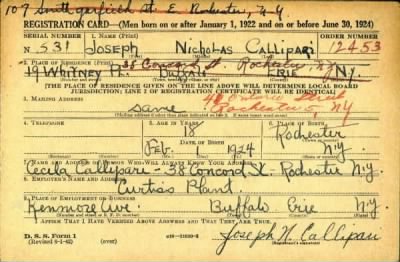 107 Smith garfield St. E. Rochester, N.Y.
REGISTRATION CARD—(Men born on or after January 1, 1922 and on or before June 30, 1924)
SERIAL NUMBER 1. NAME (Print) ORDER NUMBER
N 531 JOSEPH NICHOLAS CALLIPARI 12453
38 Concord St. Rochester, N.Y.
2. PLACE OF RESIDENCE
19 WHITNEY BUFFALO ERIE N.Y.
(THE PLACE OF RESIDENCE GIVEN ON THE LINE ABOVE WILL DETERMINE LOCAL BOARD
JURISDICTION; LINE 2 OF REGISTRATION CERTIFICATE WILL BE IDENTICAL)
3. MAILING ADDRESS
same Rochester, NY
4. TELEPHONE 5. AGE IN YEARS 6. PLACE OF BIRTH
18 Rochester
DATE OF BIRTH
Feb. 1924 N.Y.
7. NAME AND ADDRESS OF PERSON WHO WILL ALWAYS KNOW YOUR ADDRESS
Cecila Callipari - 38 Concord St. Rochester N.Y.
8. EMPLOYER'S NAME AND ADDRESS
Curtiss Plant.
9. PLACE OF EMPLOYMENT OR BUSINESS
Kenmore Ave Buffalo Erie N.Y.
I AFFIRM THAT I HAVE VERIFIED ABOVE ANSWERS AND THAT THEY ARE TRUE.
D. S. S. Form 1
(Revised 6-1-42) (over) Joseph N. Callipari